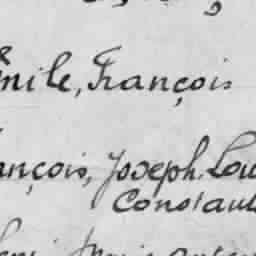 mile, François
ançois, Joseph Lou
Constau